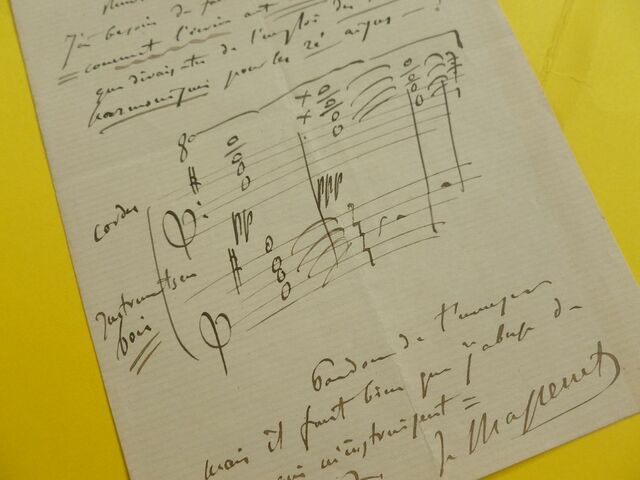 J'ai besoin de
comment l'écrire
que dirais-tu de l'emploi des
harmoniques pour les ré aigus — ?
8a
cordes
pp
ppp
Instruments en
bois
Pardon de t'ennuyer
mais il faut bien que j'abuse de
m'instruisent =
J. Massenet